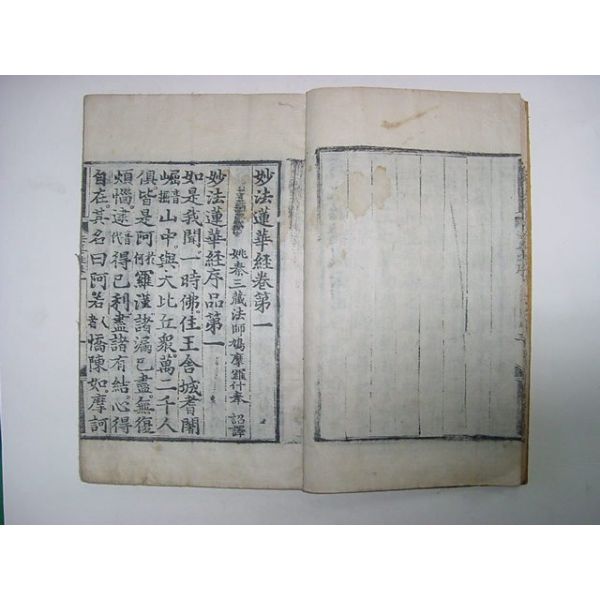 妙法蓮華経卷第一
姚秦三藏法師鳩摩羅什奉 詔譯
妙法蓮華経序品第一
如是我聞一時佛住王舍城耆闍
崛山中與大比丘衆萬二千人
俱皆是阿羅漢諸漏已盡無復
煩惱逮得已利盡諸有結心得
自在其名曰阿若憍陳如摩訶